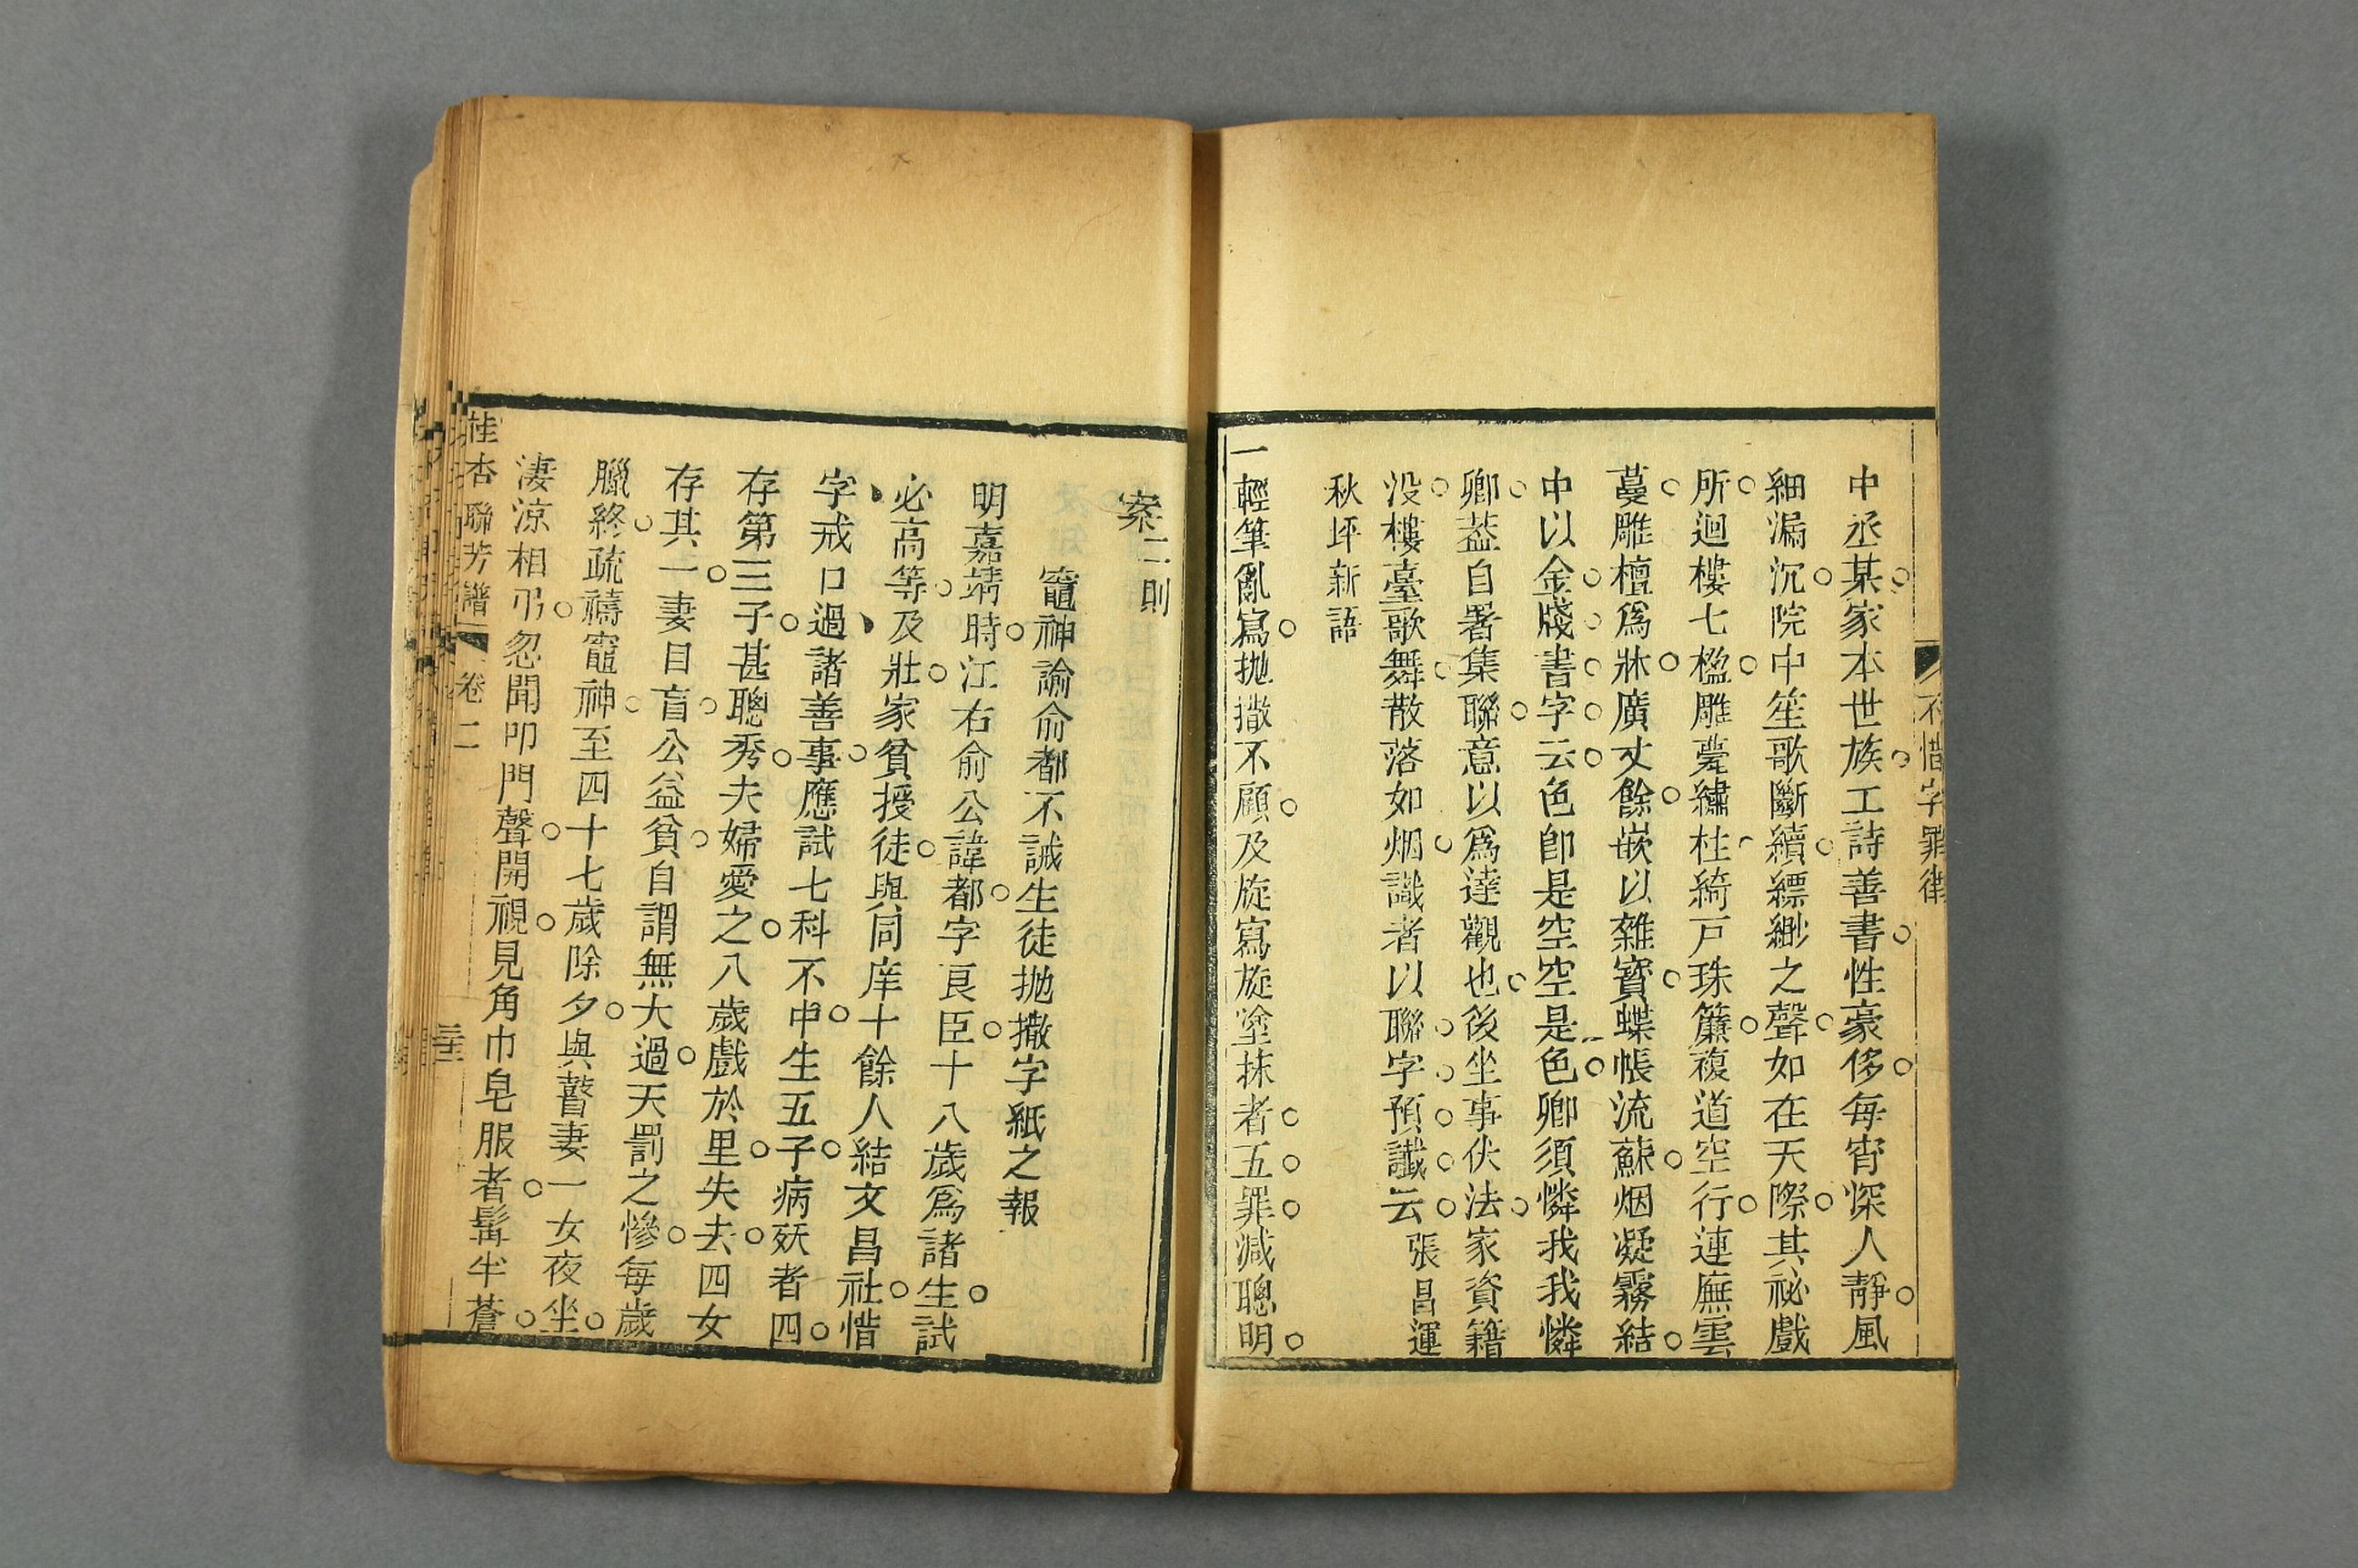 不惜字罪律
中丞某家本世族工詩善書性豪侈每宵深人靜風
細漏沉院中笙歌斷續縹緲之聲如在天際其祕戲
所迴樓七楹雕甍繡柱綺戸珠簾複道空行連廡雲
蔓雕檀爲牀廣丈餘嵌以雜寶蝶帳流蘇烟凝霧結
中以金牋書字云色卽是空空是色卿須憐我我憐
卿葢自署集聯意以爲達觀也後坐事伏法家資籍
没樓臺歌舞散落如烟識者以聯字預讖云張昌運
秋坪新語
一輕筆亂寫拋撒不顧及旋寫旋塗抹者五罪減聰明
案二則
竈神諭俞都不誡生徒拋撒字紙之報
明嘉靖時江右俞公諱都字良臣十八歲爲諸生試
必高等及壯家貧授徒與同庠十餘人結文昌社惜
字戒口過諸善事應試七科不中生五子病殀者四
存第三子甚聰秀夫婦愛之八歲戲於里失去四女
存其一妻目盲公益貧自謂無大過天罰之慘每歲
臘終疏禱竈神至四十七歲除夕與瞽妻一女夜坐
淒涼相弔忽聞叩門聲開視見角巾皂服者髯半蒼
桂杏聯芳譜 卷二